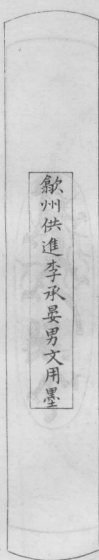 歙州供進李承晏男文用墨